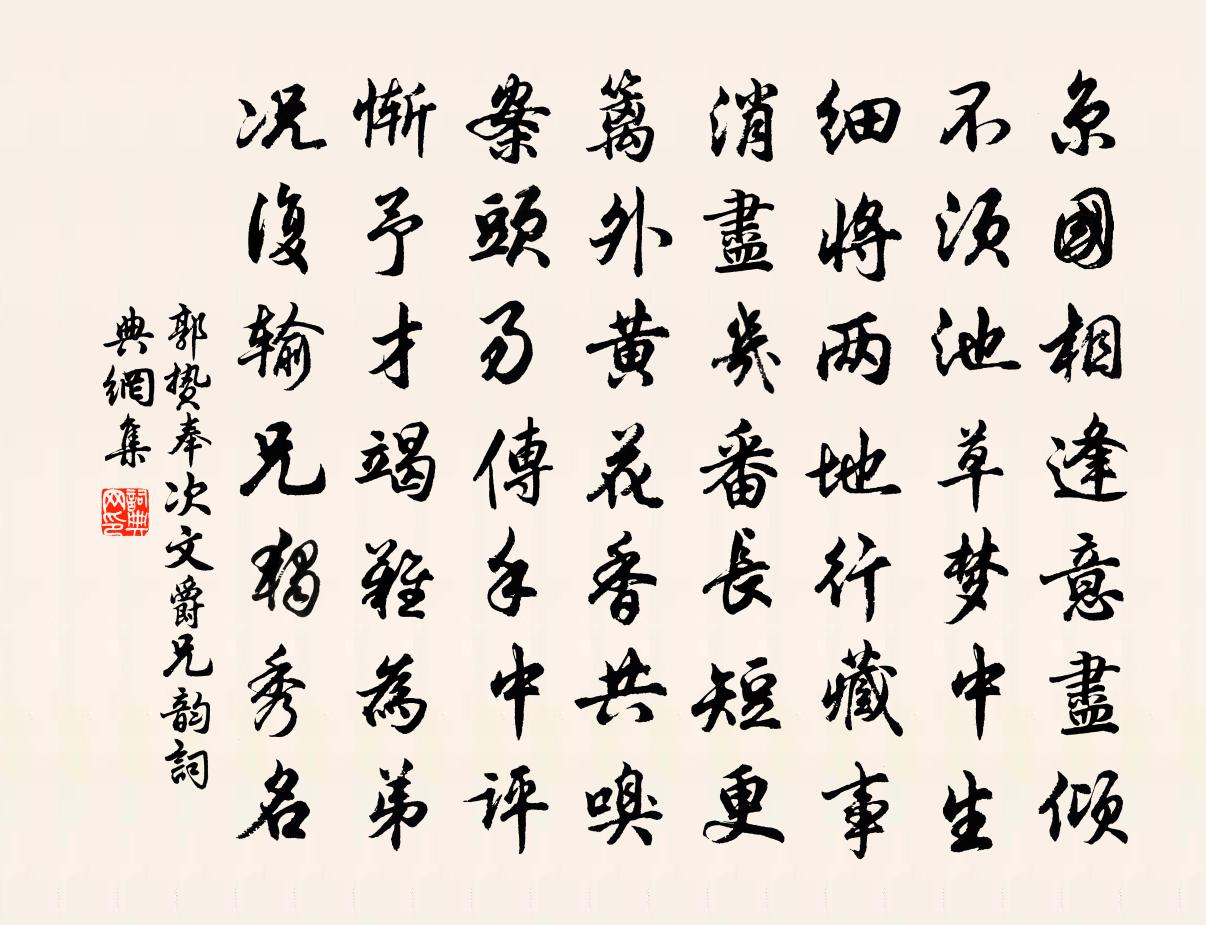 京國相逢意盡傾
不須池草梦中生
細將两地行藏事
消盡幾番長短更
籬外黄花香共嗅
案頭易傳手中評
慚予才竭難為弟
况復输兄獨秀名
郭贽奉次文爵兄韵詞
典網集
詞典网印